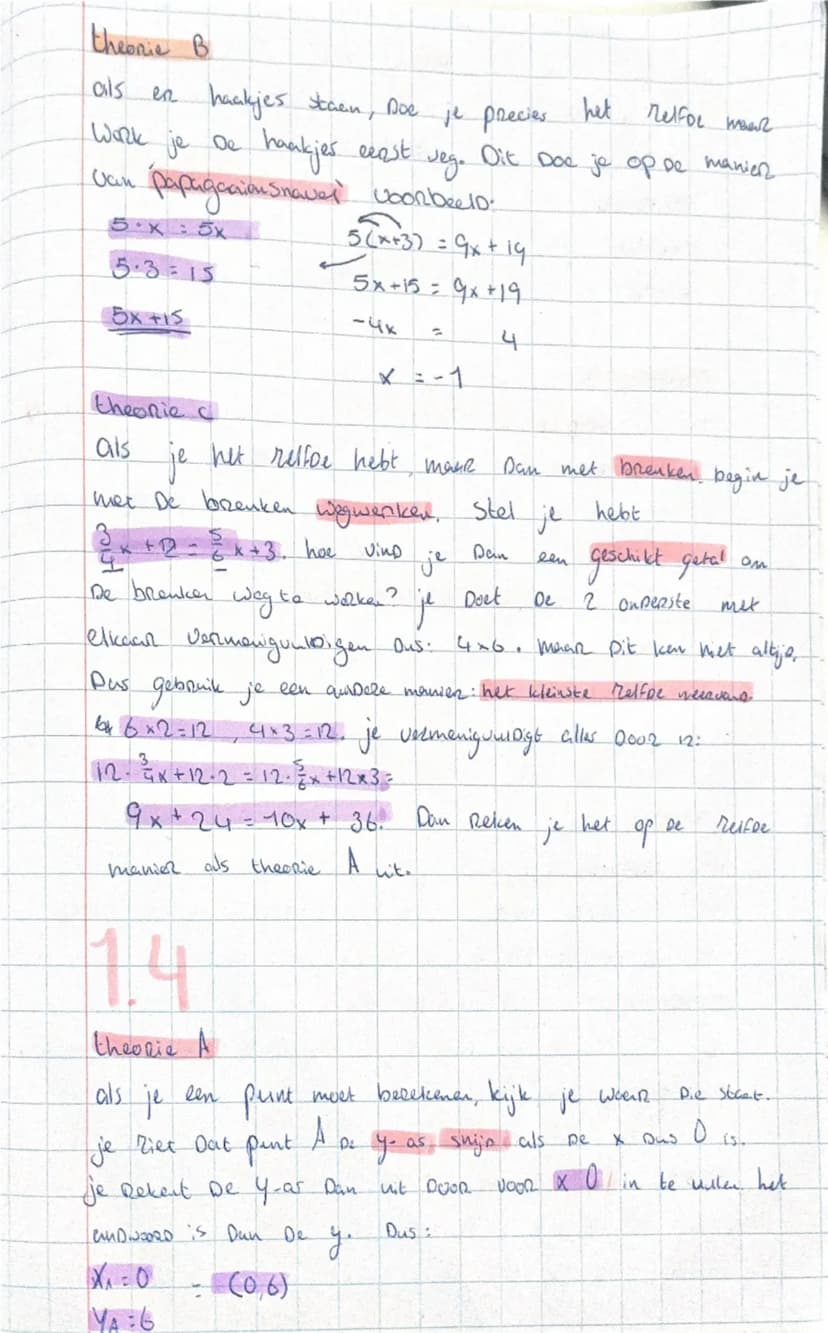 theorie B
als er haakjes staen, Doe je precies het zelfde maar
Werk je De haakjes eerst weg. Dit Doe je op De manier
van 'papagaaiensnavel' voorbeeld:
5·x = 5x
5(x+3) = 9x + 19
5·3 = 15
5x+15 = 9x+19
5x+15
-4x = 4
x = -1
theorie C
als je het zelfde hebt, maar Dan met breuken. begin je
met De breuken wegwerken. Stel je hebt
3/4x + 12 = 5/6x+3. hoe vind je Dan een geschikt getal om
De breuken weg te werken? je Doet De 2 onderste met
elkaar vermenigvuldigen Dus: 4×6. maar Dit kan niet altijd.
Dus gebruik je een andere manier: het kleinste zelfde veelvoud
6×2=12, 4×3=12. je vermenigvuldigt alles Door 12:
12·3/4x+12·2 = 12·5/6x+12×3=
9x + 24 = 10x + 36. Dan Reken je het op De zelfde
manier als theorie A uit.
1.4
theorie A
als je een punt moet berekenen, kijk je waar Die staat.
je ziet Dat punt A De y-as, snijd als De x Dus 0 is.
je Rekent De y-as Dan uit Door voor x 0 in te vullen het
andwoord is Dan De y. Dus:
XA = 0 = (0,6)
YA = 6